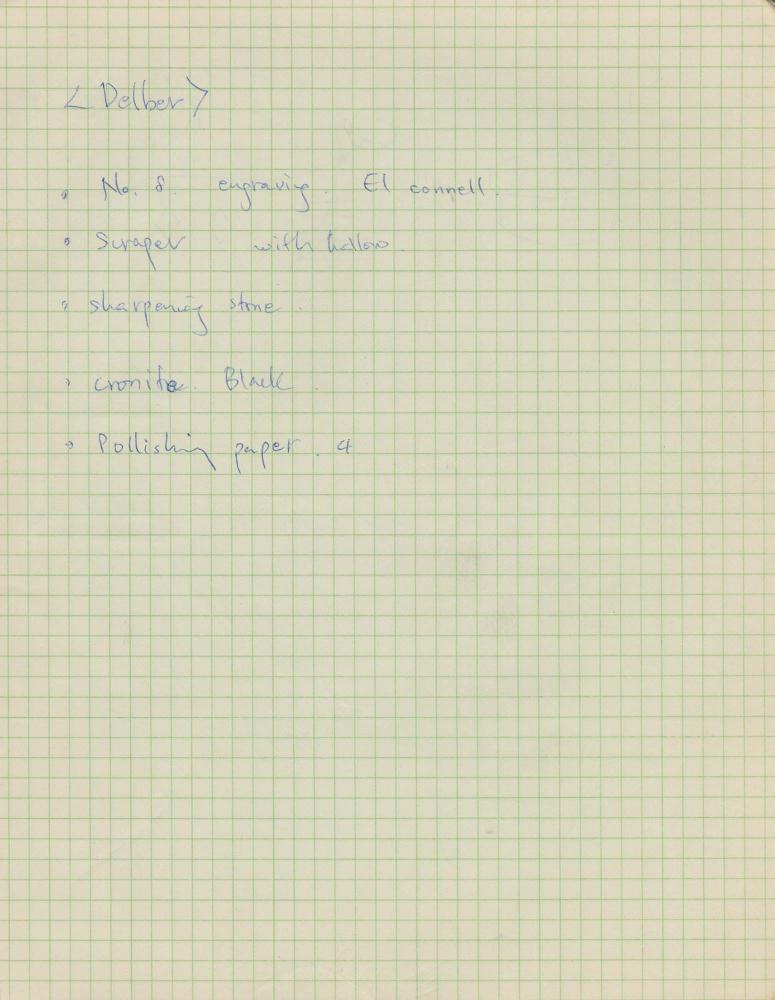 < Delber >
• No. 8. engraving. El connell.
• Scraper with hollow.
• sharpening stone.
• cronite. Black.
• Pollishing paper. 4